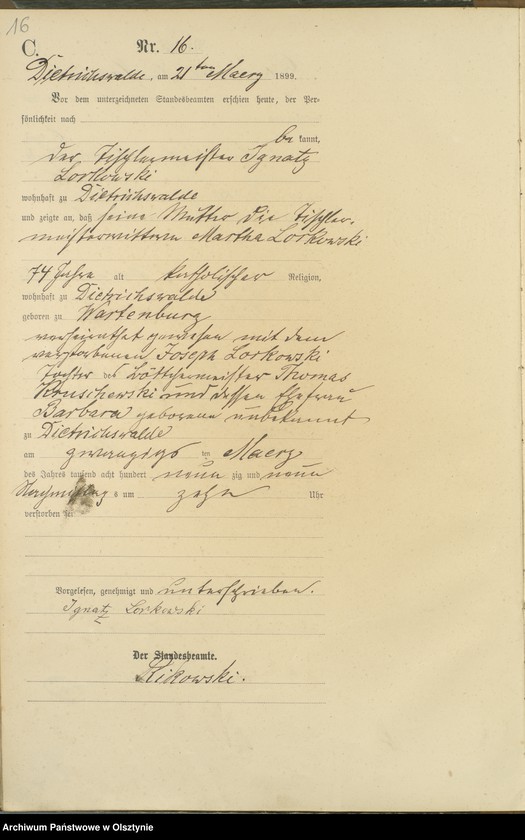 16
C. Nr. 16.
Dietrichswalde, am 21ten Maerz 1899.
Vor dem unterzeichneten Standesbeamten erschien heute, der Per-
sönlichkeit nach
be kannt,
der Tischlermeister Ignatz
Lorkowski
wohnhaft zu Dietrichswalde
und zeigte an, daß seine Mutter die Tischler-
meisterwittwe Martha Lorkowski
74 Jahre alt katholischer Religion,
wohnhaft zu Dietrichswalde
geboren zu Wartenburg
verheirathet gewesen mit dem
verstorbenen Joseph Lorkowski
Tochter des Böttchermeister Thomas
Kruschewski und dessen Ehefrau
Barbara geborene unbekannt
zu Dietrichswalde
am zwanzigs ten Maerz
des Jahres tausend acht hundert neun zig und neun
Nachmittag s um zehn Uhr
verstorben sei
Vorgelesen, genehmigt und unterschrieben.
Ignatz Lorkowski
Der Standesbeamte.
Rikowski.
Archiwum Państwowe w Olsztynie